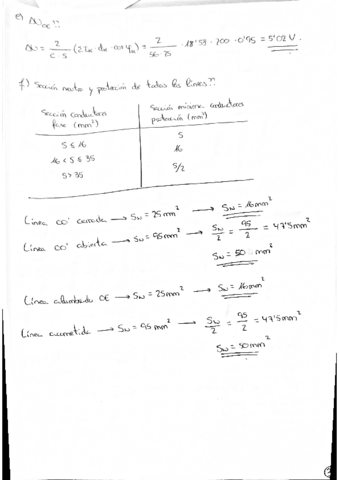 e) ΔU_OE ??
ΔU = 2/(C·S) (ΣI_k · d_k · cos φ_k) = 2/(56·25) · 18'53 · 200 · 0'95 = 5'02 V.
f) Sección neutro y protección de todas las líneas??
Sección conductores fase (mm²) | Sección mínima conductores protección (mm²)
S ≤ 16 | S
16 < S ≤ 35 | 16
S > 35 | S/2
Línea CO' cerrada → S_N = 25 mm² → S_N = 16 mm²
Línea CO' abierta → S_N = 95 mm² → S_N/2 = 95/2 = 47'5 mm²
S_N = 50 mm²
Línea alumbrado OE → S_N = 25 mm² → S_N = 16 mm²
Línea acometida → S_N = 95 mm² → S_N/2 = 95/2 = 47'5 mm²
S_N = 50 mm²